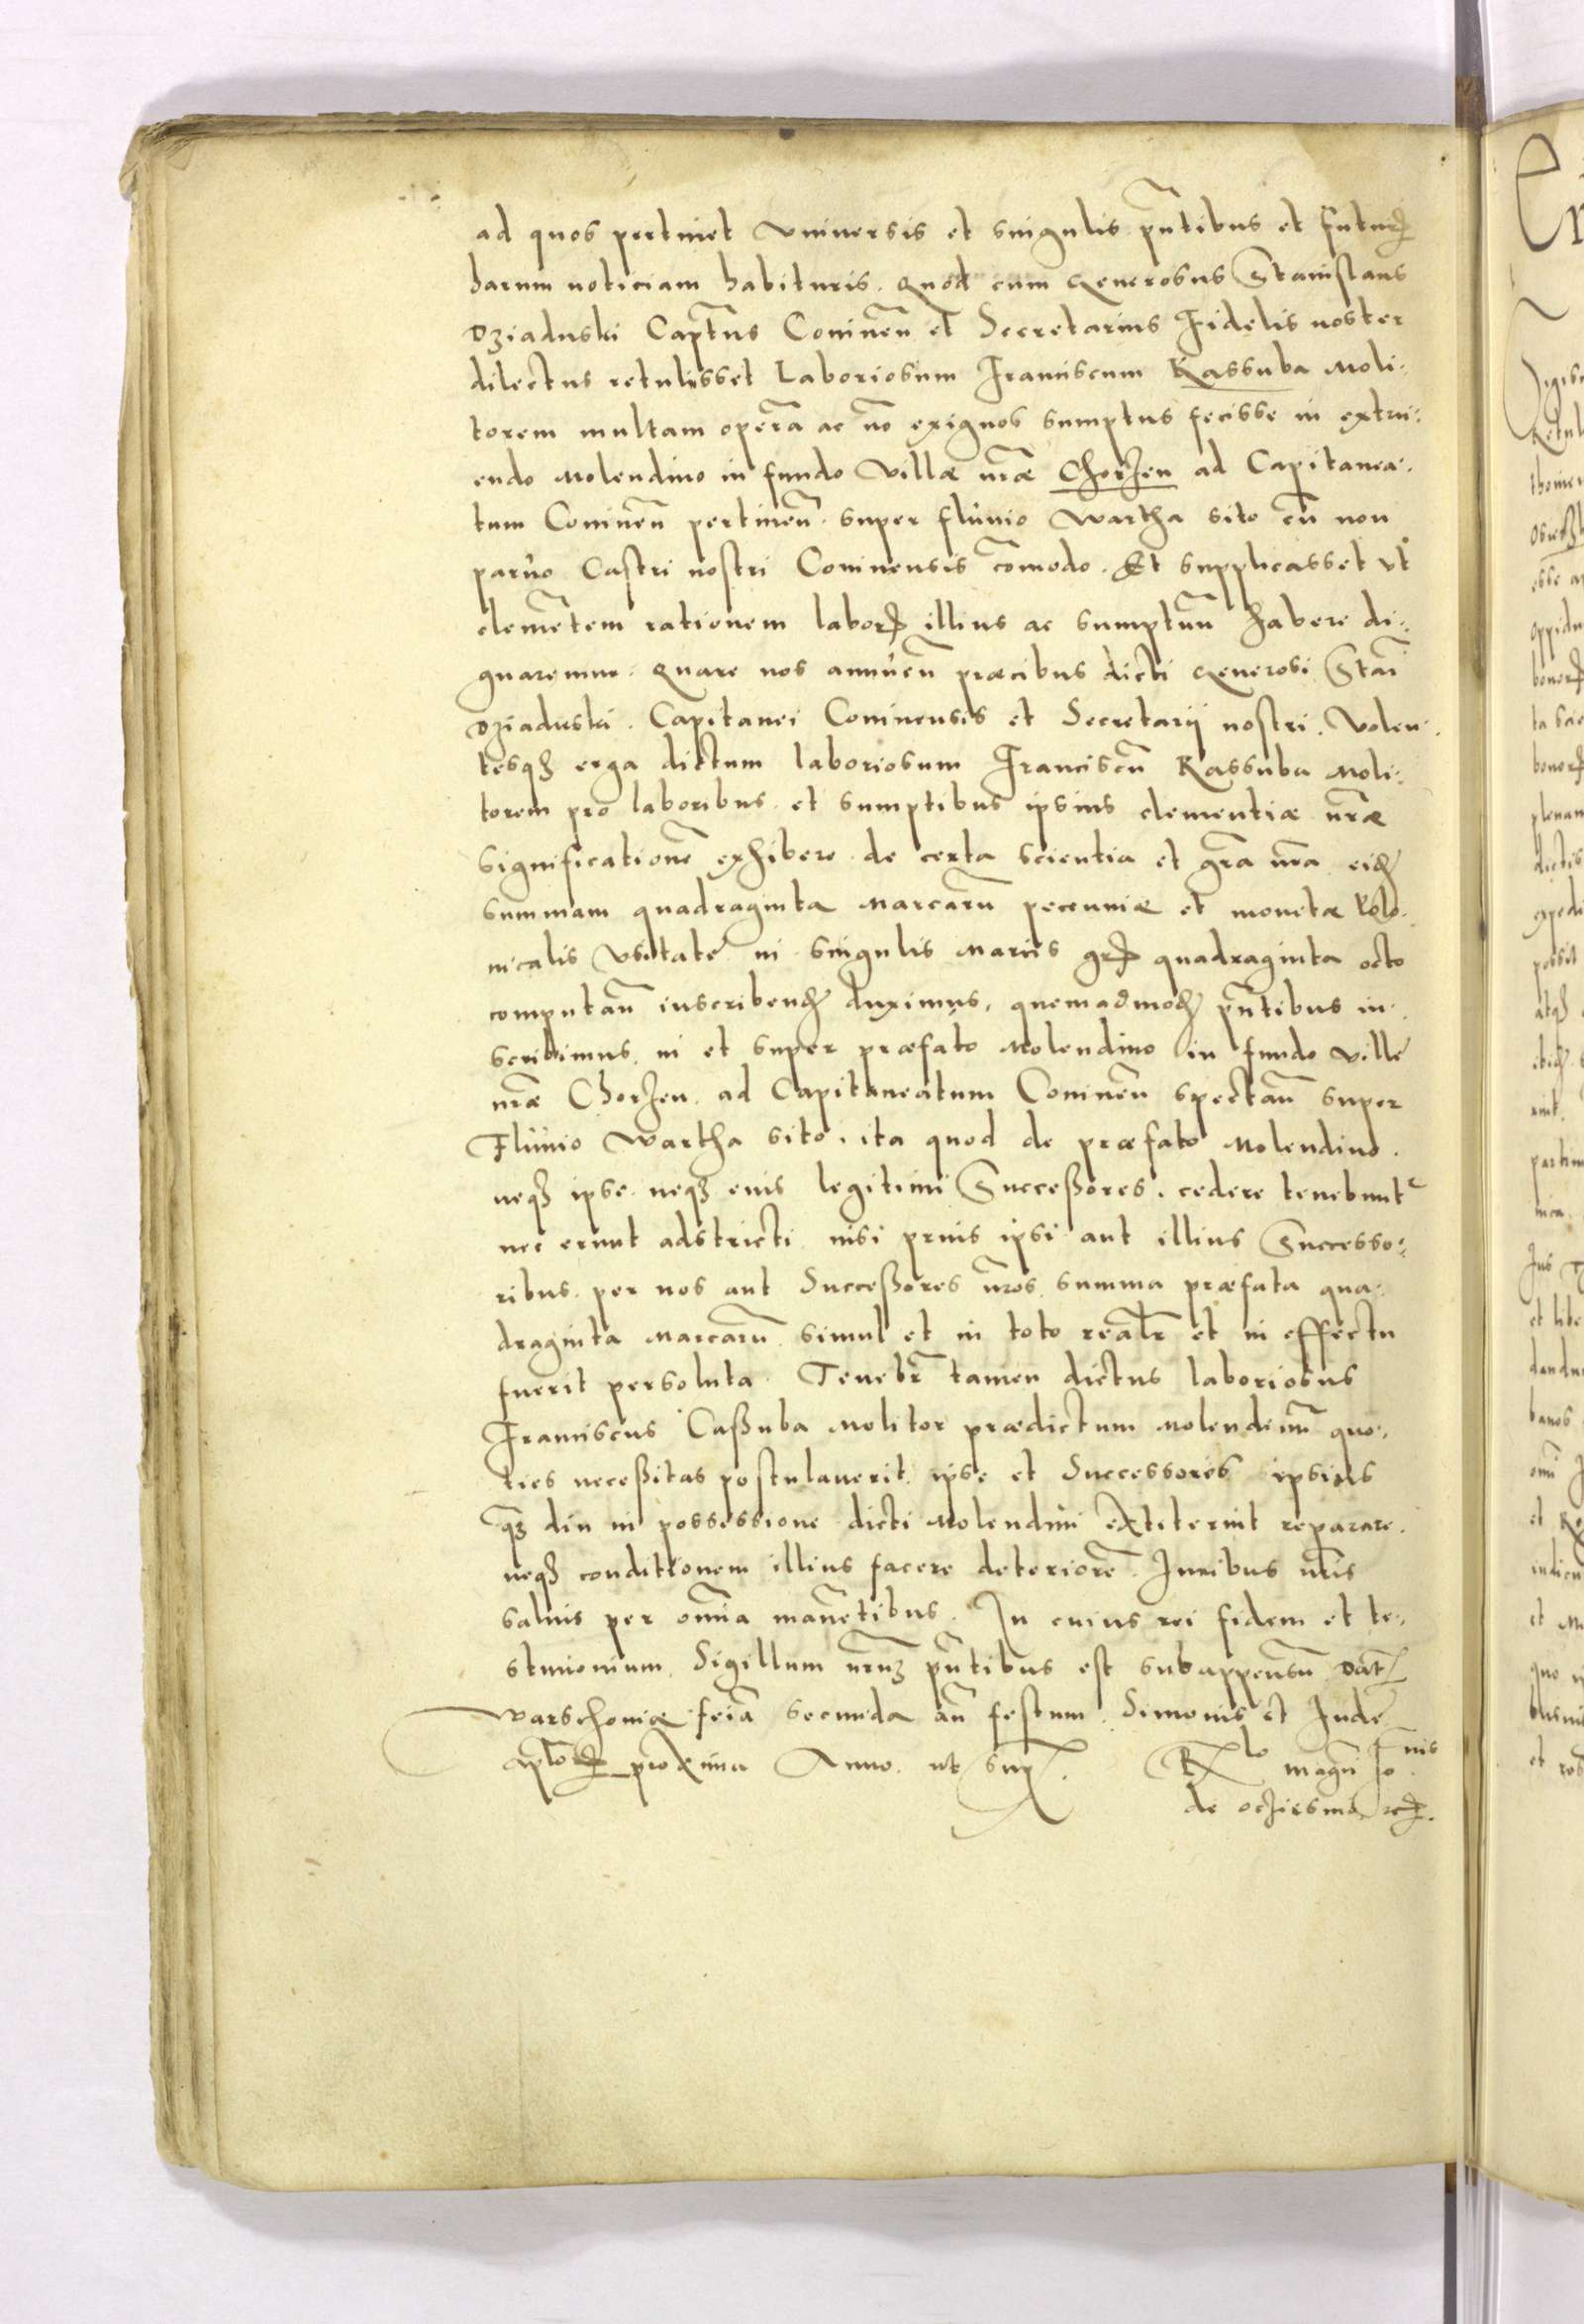 ad quos pertinet Vniuersis et singulis pñtibus et futuꝝ
harum noticiam habituris. Quod cum Generosus Stanislaus
Dziaduski Capt̃us Conineñ et Secretarius Fidelis noster
dilectus retulisset Laboriosum Franciscum Kassuba Moli-
torem multam operã ac nõ exiguos sumptus fecisse in extru-
endo Molendino in fundo Villæ nr̃æ Chorzen ad Capitanea-
tum Conineñ pertineñ. super fluuio Wartha sito cũ non
paruo Castri nostri Coninensis cõmodo. Et supplicasset Vt
clemẽtem rationem laboꝝ illius ac sumptuũ habere di-
gnaremur. Quare nos annueñ præcibus dicti Generosi Stañ
Dziaduski. Capitanei Coninensis et Secretarij nostri. Volen-
tesqꝫ erga dictum laboriosum Franciscũ Kassuba Moli-
torem pro laboribus et sumptibus ipsius clementiæ nr̃æ
significationẽ exhibere. de certa scientia et gr̃a nr̃a eidẽ
summam quadraginta Marcarũ pecuniæ et monetæ Polo-
nicalis Vsitate in singulis Marcis gr̃ꝝ quadraginta octo
computañ inscribendã duximus, quemadmodũ pñtibus in-
scribimus in et super præfato Molendino in fundo Ville
nr̃æ Chorzen ad Capitaneatum Coninẽn spectañ super
Fluuio Wartha sito. ita quod de præfato Molendino.
neqꝫ ipse neqꝫ eius legitimi Succeßores. cedere tenebunt̃
nec erunt adstricti nisi prius ipsi aut illius Successo-
ribus per nos aut Succeßores nr̃os summa præfata qua-
draginta Marcarũ simul et in toto realr̃ et in effectu
fuerit persoluta. Tenebr̃ tamen dictus laboriosus
Franciscus Caßuba Molitor prædictum Molendinũ quo-
ties neceßitas postulauerit ipse et Successores ipsius
qꝫ diu in possessione dicti Molendini extiterint reparare.
neqꝫ conditionem illius facere deteriorẽ. Iuribus nr̃is
saluis per om̃ia manẽtibus. In cuius rei fidem et te-
stimonium Sigillum nr̃uꝫ pñtibus est subappensũ Dat̃
Warschouiæ feĩa secunda añ festum Simonis et Iude
Aplõꝝ proxima Anno ut sup̃. Rlo magñ Io
de oczieśma